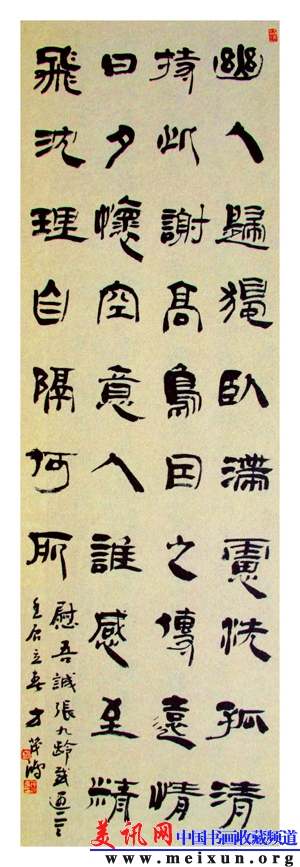 幽人歸獨臥滯慮洗孤清
持此謝高鳥因之傳遠情
日夕懷空意人誰感至精
飛沈理自隔何所
慰吾誠張九齡感遇
立春
美讯网 中国书画收藏频道
www.meixun.org